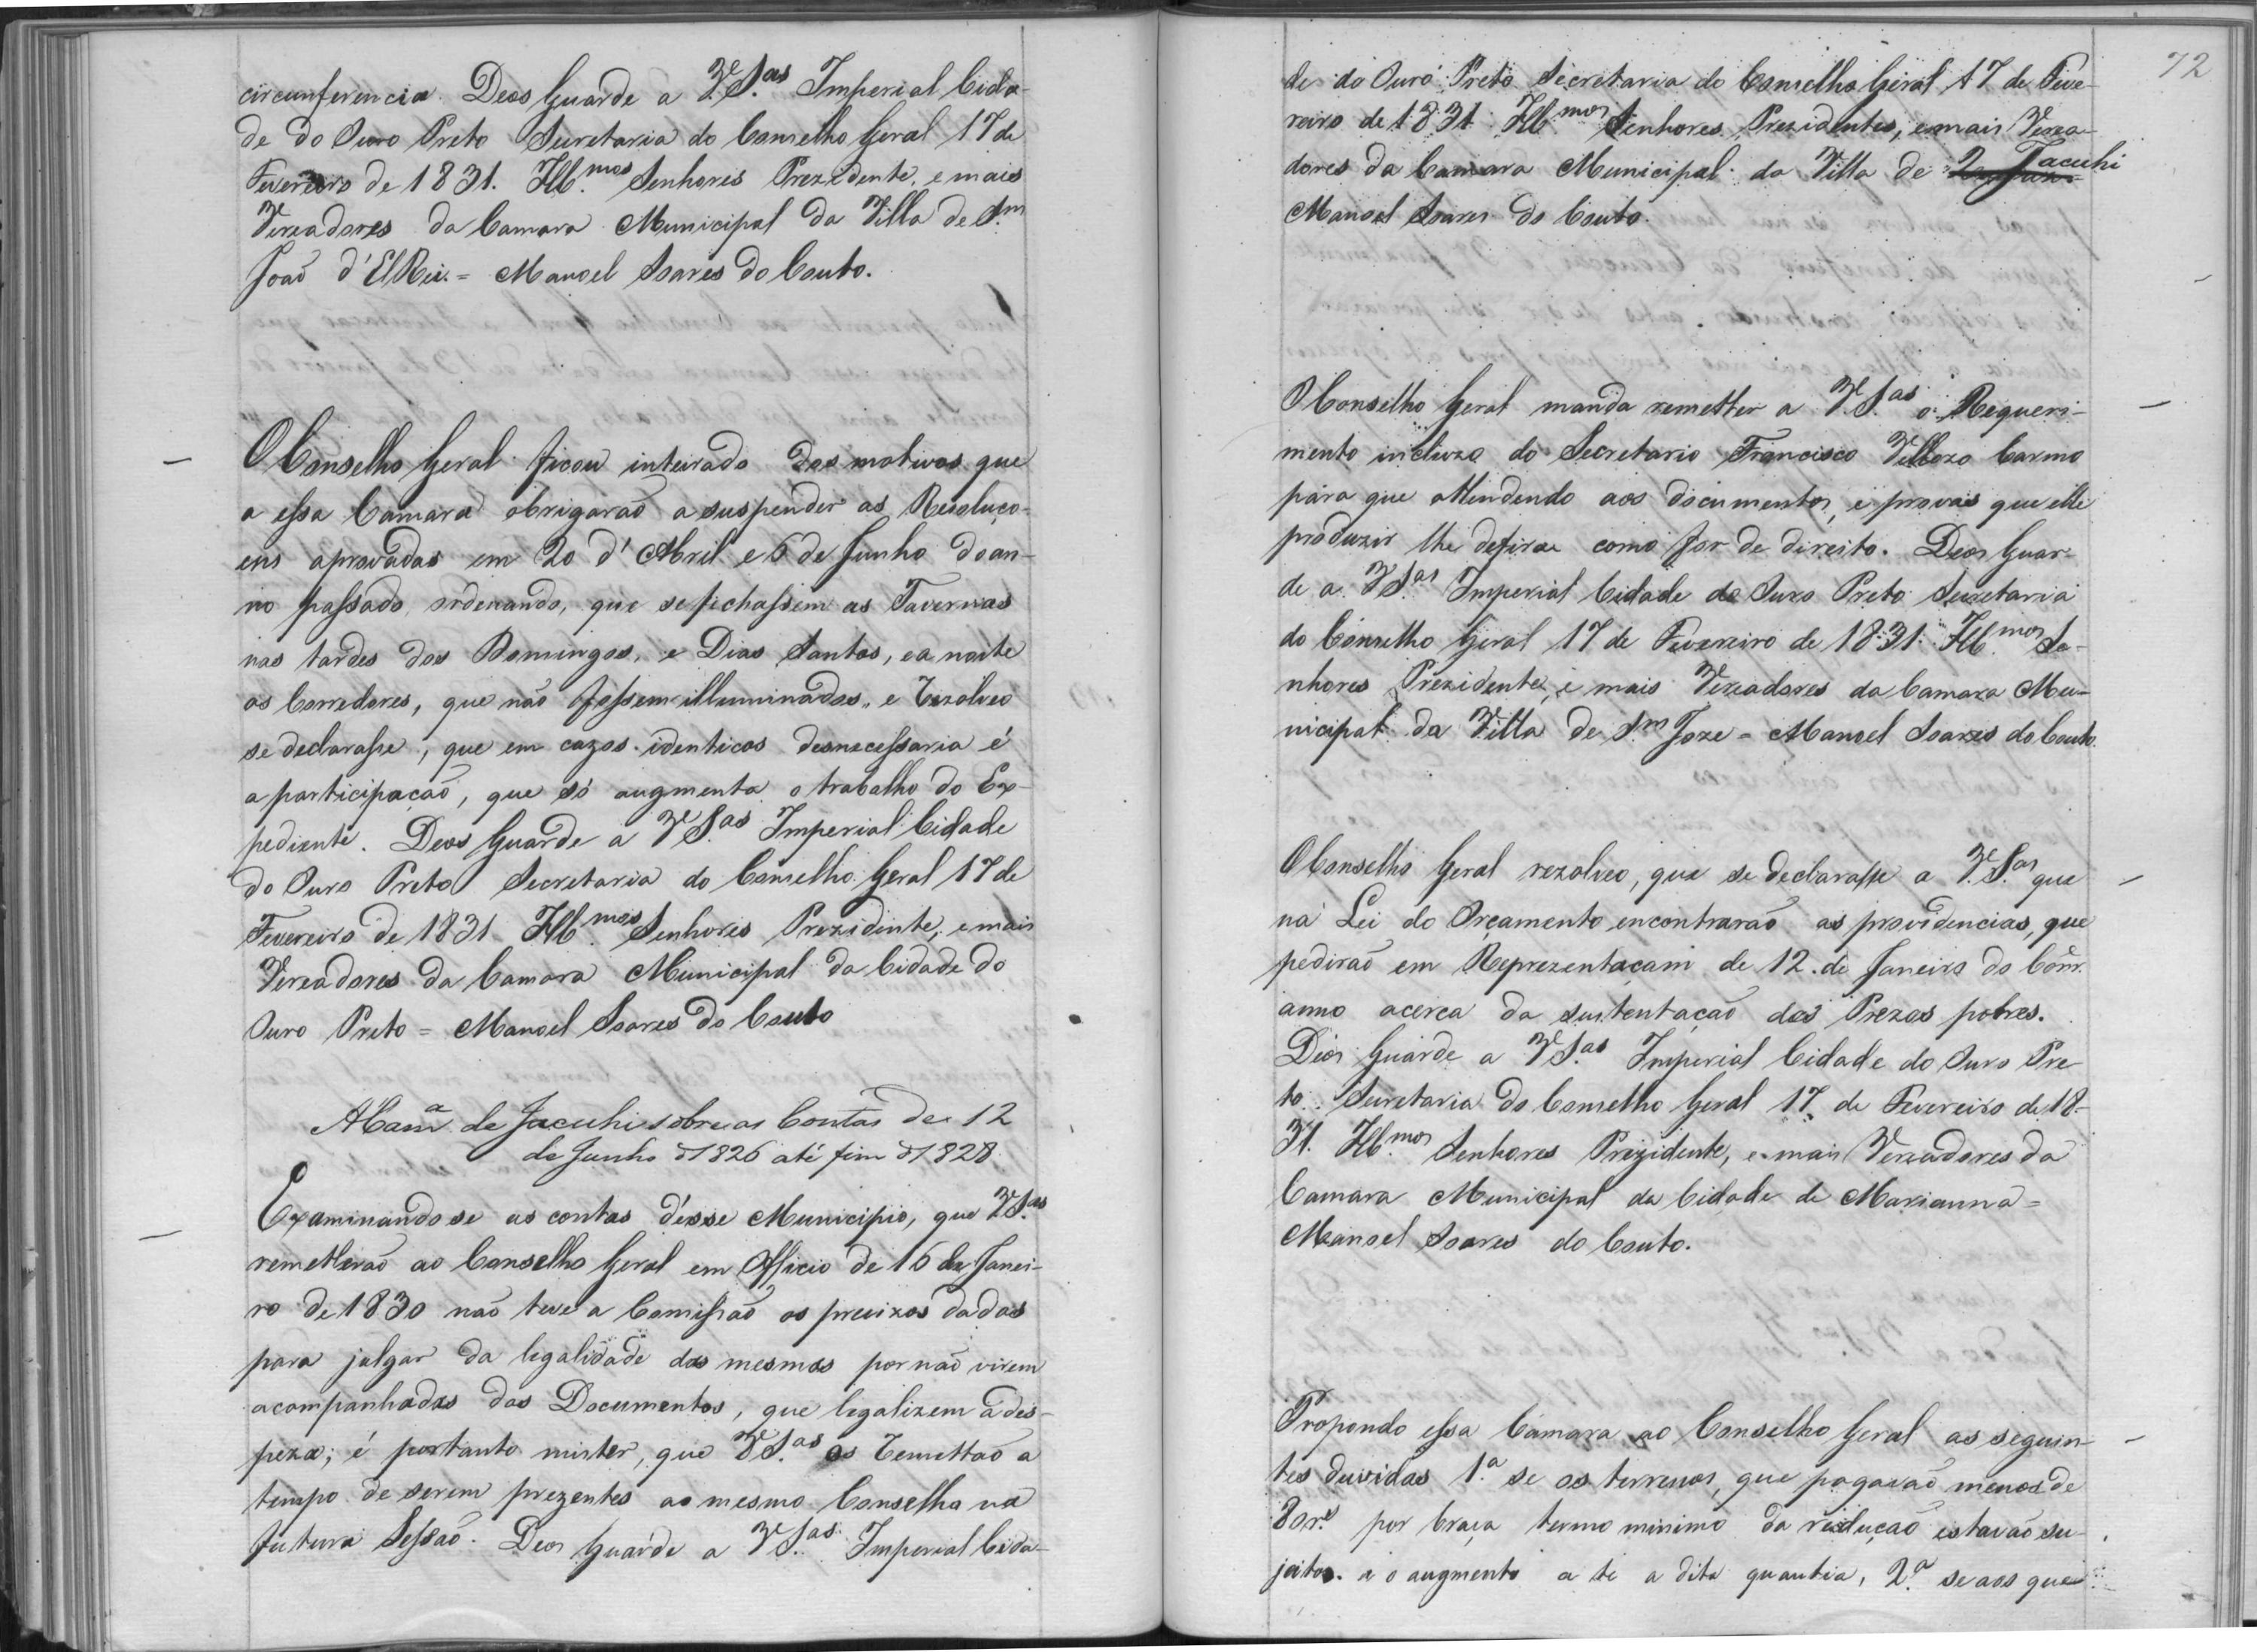 circunferencia. Deos Guarde a V.S.as Imperial Cida-
de do Ouro Preto Secretaria do Conselho Geral 17 de
Fevereiro de 1831. Ill.mos Senhores Prezidente, e mais
Vereadores da Camara Municipal da Villa de S.m
João d'ElRei. = Manoel Soares do Couto.
O Conselho Geral ficou inteirado dos motivos que
a essa Camara obrigarão a suspender as Resoluço-
ens aprovadas em 20 d'Abril e 6 de Junho do an-
no passado, ordenando, que se fichassem as Tavernas
nas tardes dos Domingos, e Dias Santos, e a noite
os Corredores, que não fossem illuminados, e rezolveo
se declarasse, que em cazos identicos desnecessaria é
a participação, que só augmenta o trabalho do Ex-
pediente. Deos Guarde a V.S.as Imperial Cidade
do Ouro Preto Secretaria do Conselho Geral 17 de
Fevereiro de 1831. Ill.mos Senhores Prezidente, e mais
Vereadores da Camara Municipal da Cidade do
Ouro Preto = Manoel Soares do Couto
A Camª de Jacuhi sobre as Contas de 12
de Junho d1826 até fim d1828
Examinando se as contas d'esse Municipio, que V.S.as
remetterão ao Conselho Geral em Officio de 16 de Janei-
ro de 1830 não teve a Comissão os precizos dados
para julgar da legalidade das mesmas por não virem
acompanhadas dos Documentos, que legalizem a des-
peza; é portanto mister, que V.S.as os remettão a
tempo de serem prezentes ao mesmo Conselho na
futura Sessão. Deos Guarde a V.S.as Imperial Cida-
72
de do Ouro Preto Secretaria do Conselho Geral 17 de Feve-
reiro de 1831 Ill.mos Senhores Prezidentes, e mais Verea-
dores da Camara Municipal da Villa de Jacuhi
Manoel Soares do Couto.
O Conselho Geral manda remetter a V.S.as o Requeri-
mento incluzo do Secretario Francisco Vellozo Carmo
para que attendendo aos documentos, e provas que elle
produzir lhe defirão como for de direito. Deos Guar-
de a V.S.as Imperial Cidade do Ouro Preto Secretaria
do Conselho Geral 17 de Fevereiro de 1831. Ill.mos Se-
nhores Prezidente, e mais Vereadores da Camara Mu-
nicipal da Villa de S.m Joze = Manoel Soares do Couto.
O Conselho Geral rezolveo, que se declarasse a V.S.as que
na Lei do Orçamento encontrarão as providencias, que
pedirão em Reprezentaçam de 12 de Janeiro do Corr.
anno acerca da sustentação dos Prezos pobres.
Deos Guarde a V.S.as Imperial Cidade do Ouro Pre
to Secretaria do Conselho Geral 17 de Fevereiro de 18-
31. Ill.mos Senhores Prezidente, e mais Vereadores da
Camara Municipal da Cidade de Marianna =
Manoel Soares do Couto.
Propondo essa Camara ao Conselho Geral as seguin-
tes duvidas 1.ª se os terrenos, que pagavão menos de
80r.s por braça termo minimo da redução estavão su-
jeitos a o augmento a te a dita quantia, 2.ª se aos que